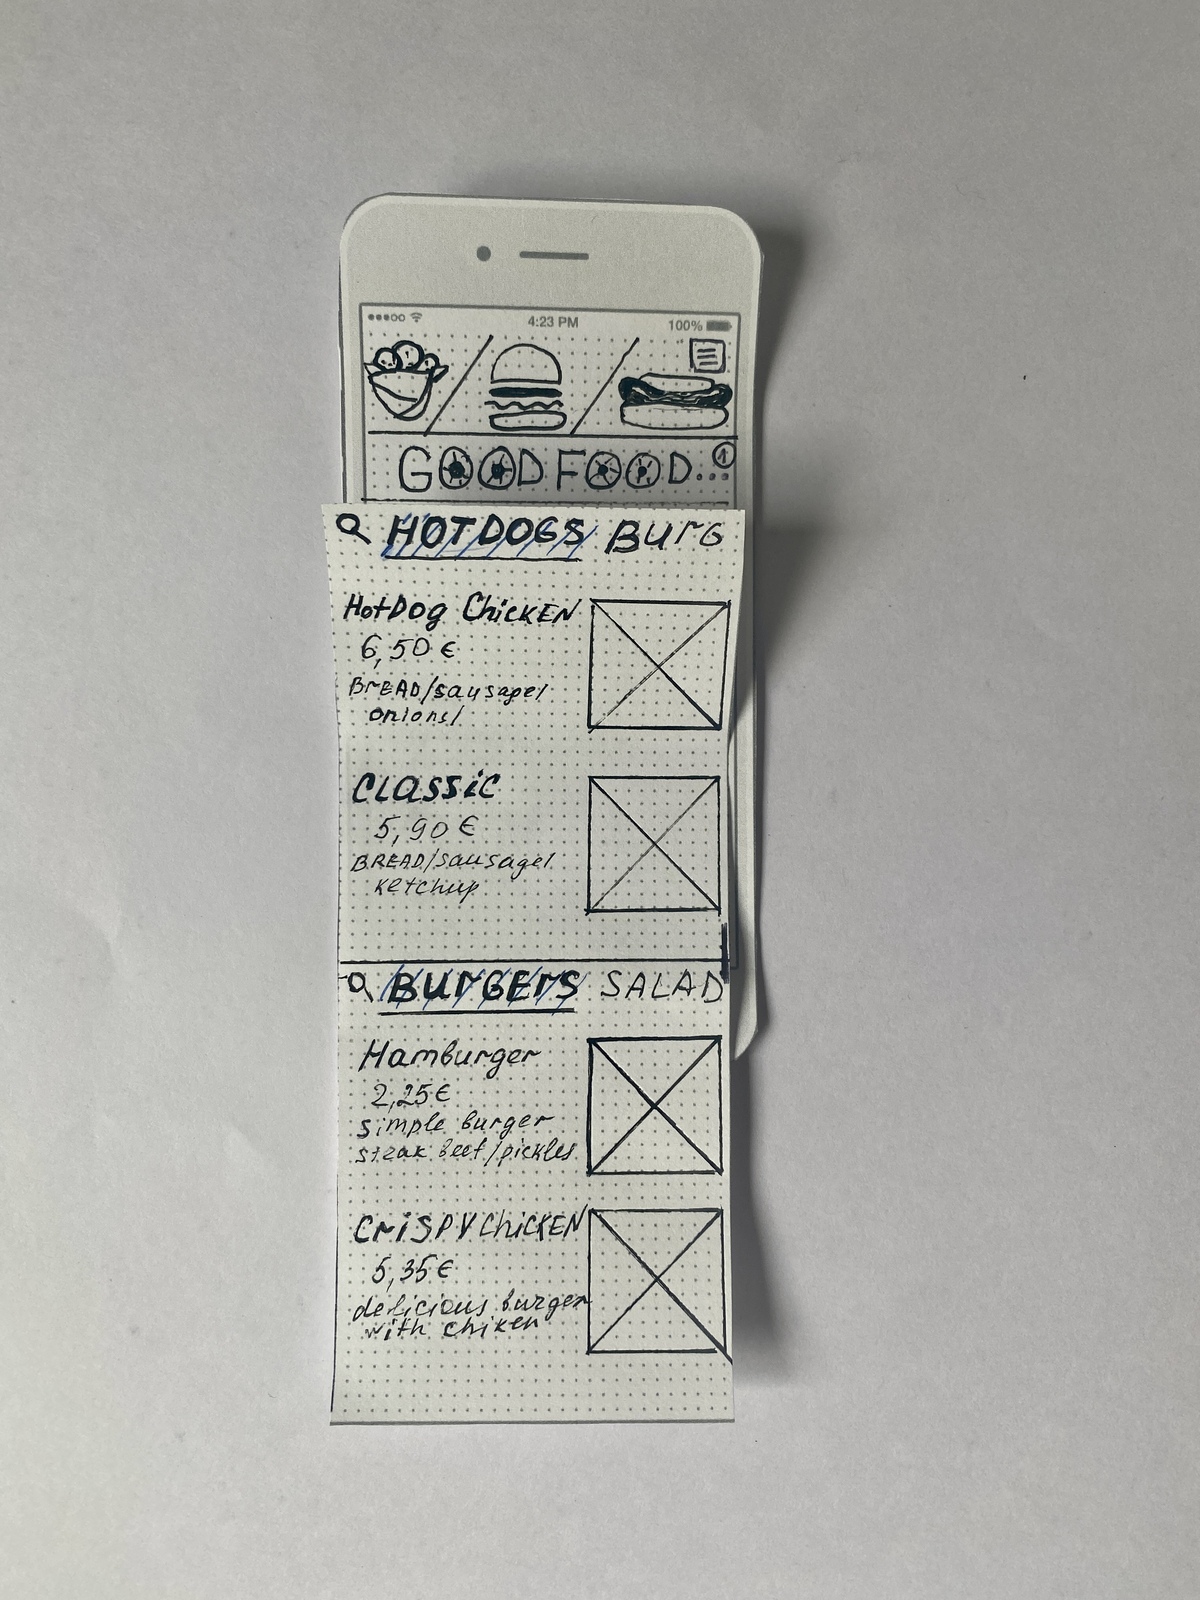 4:23 PM
100%
GOOD FOOD...
1
HOTDOGS BUrG
HotDog ChicKEN
6,50 €
BrEAD/sausage/
onions/
CLassic
5,90 €
BREAD/sausage/
ketchup
BUrGErs SALAD
Hamburger
2,25€
simple burger
steak beef/pickles
CriSPY ChicKEN
5,35€
delicious burger
with chiken